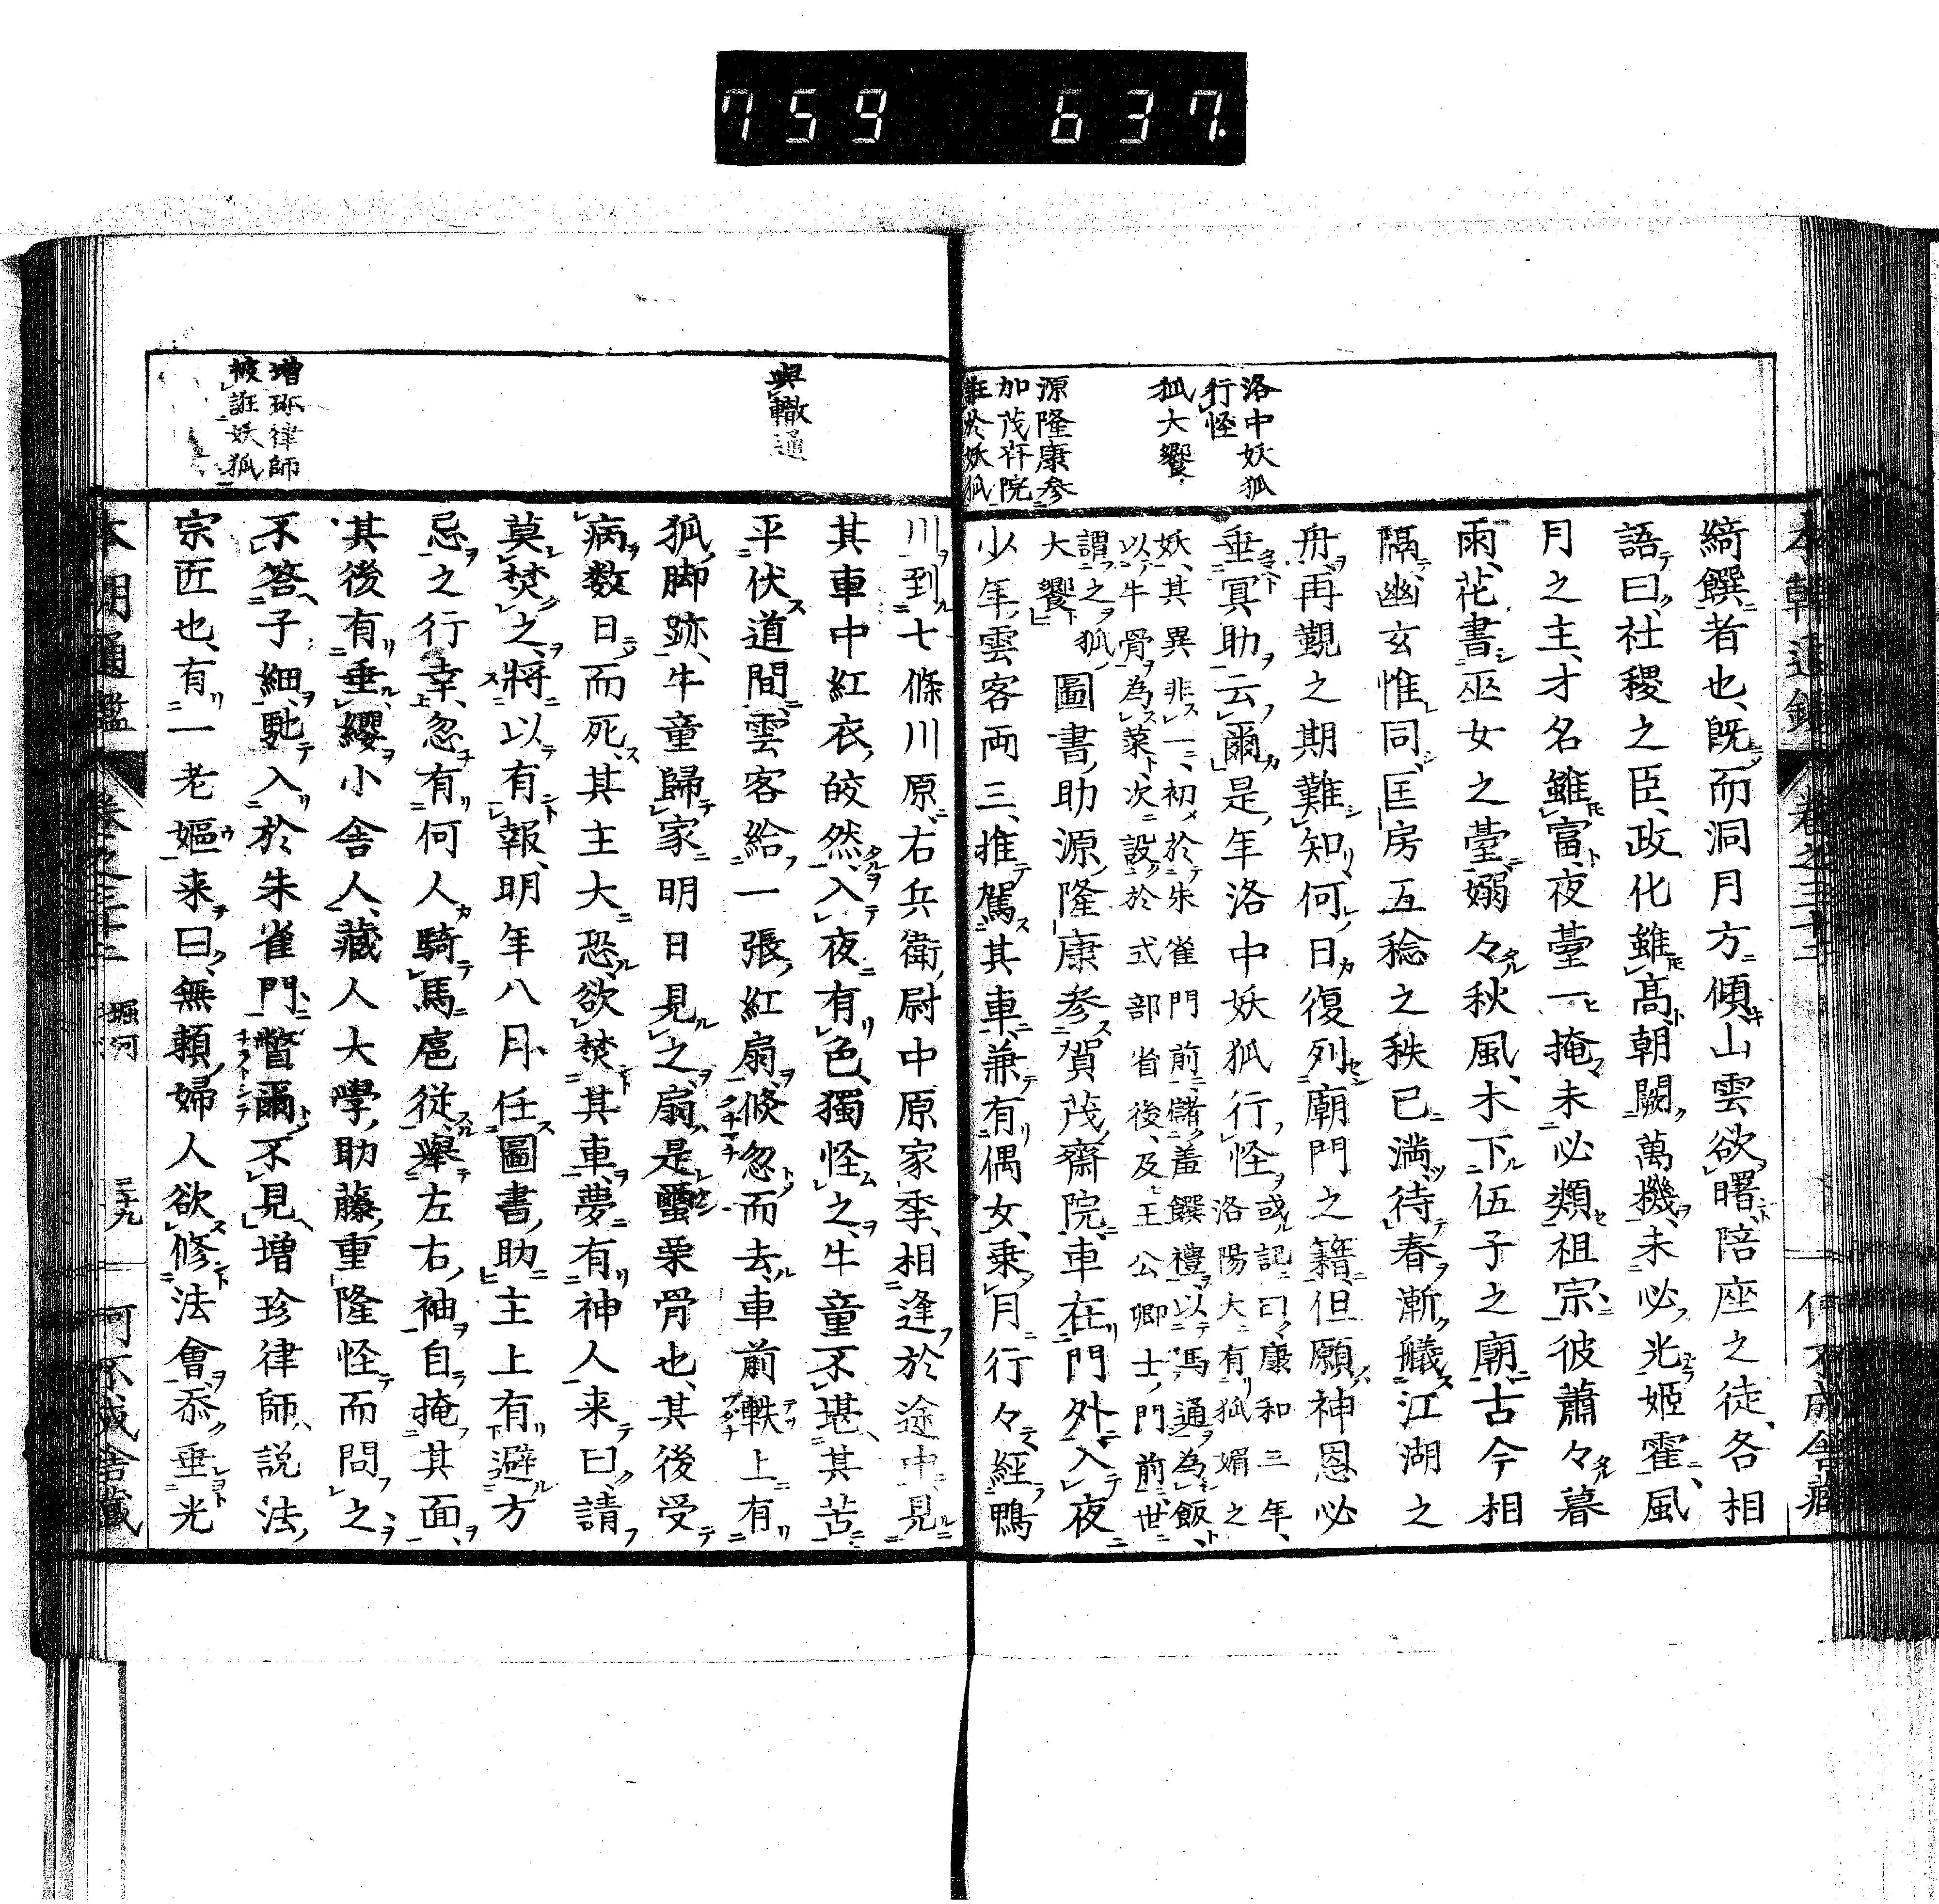 759 637.
洛中妖狐
行怪
狐大饗
源隆康参
加茂斎院
誑於妖狐
綺饌者也、既而洞月方傾、山雲欲曙、陪座之徒、各相
語曰、社稷之臣、政化雖高、朝闕萬機、未必光姫霍、風
月之主、才名雖富、夜臺一掩、未必類祖宗、彼蕭々暮
雨、花書巫女之臺、嫋々秋風、木下伍子之廟、古今相
隔、幽玄惟同、匡房五稔之秩已満、待春漸艤江湖之
舟、再覲之期難知、何日復列廟門之籍、但願神恩必
垂冥助云爾、是年洛中妖狐行怪、
或記曰、康和三年、
洛陽大有狐媚之
妖、其異非一、初於朱雀門前、儲羞饌禮、以馬通為飯、
以牛骨為菜、次設於式部省後、及王公卿士門前、世
謂之狐
大饗
圖書助源隆康参賀茂齋院、車在門外、入夜
少年雲客両三、推駕其車、兼有偶女、乗月行々、経鴨
輿轍通
増珎律師
被誑妖狐
川到七條川原、右兵衛尉中原家季、相逢於途中、見
其車中紅衣皎然、入夜有色、獨怪之、牛童不堪其苦、
平伏道間、雲客給一張紅扇、倏忽而去、車前軼上有
狐脚跡、牛童歸家、明日見之、扇是靈栗骨也、其後受
病、数日而死、其主大恐、欲焚其車、夢有神人来曰、請
莫焚之、將以有報、明年八月、任圖書助、主上有避方
忌之行幸、忽有何人騎馬扈従、舉左右袖、自掩其面、
其後有垂纓小舎人、藏人大學助藤重隆怪而問之、
不答子細、馳入於朱雀門、瞥爾不見、増珍律師、説法
宗匠也、有一老嫗来曰、無頼婦人欲修法會、忝垂光
本朝通鑑 卷之三十二 堀河 三十九